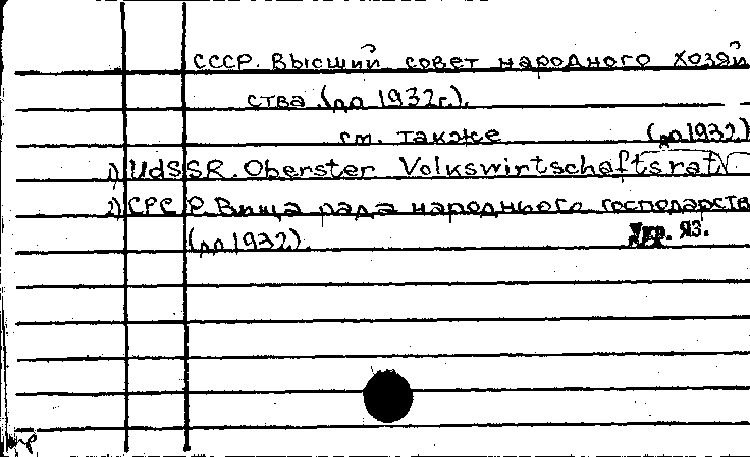 СССР. Высший совет народного хозяй
ства (до 1932г.).
см. также (до 1932)
1) UdSSR. Oberster Volkswirtschaftsrat
2) СРСР. Вища рада народнього господарств
(до 1932). Укр. яз.